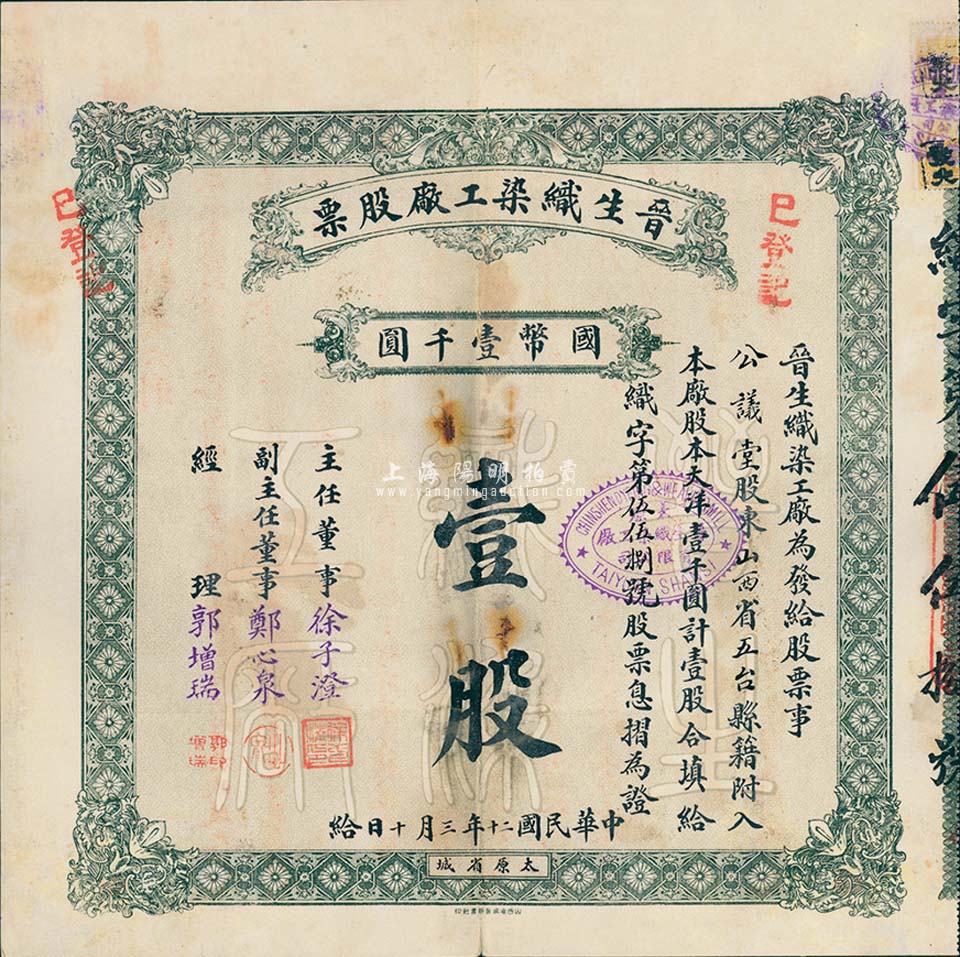 晉生織染工廠股票
國幣壹千圓
已登記
已登記
晉生織染工廠為發給股票事
公議堂股東山西省五台縣籍附入
本廠股本大洋壹千圓計壹股合填給
織字第伍伍捌號股票息摺為證
壹股
主任董事徐子澄
副主任董事鄭心泉
經理郭增瑞
中華民國二十年三月十日給
太原省城
上海陽明拍賣
www.yangmingauction.com
TAIYUAN SHANSI